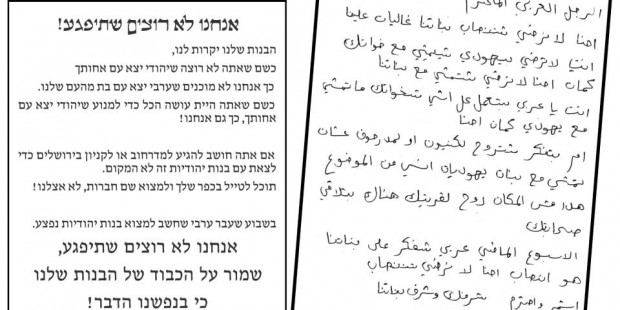 אנחנו לא רוצים שתיפגע!
הבנות שלנו יקרות לנו,
כשם שאתה לא רוצה שיהודי יצא עם אחותך
כך אנחנו לא מוכנים שערבי יצא עם בת מהעם שלנו.
כשם שאתה היית עושה הכל כדי למנוע שיהודי יצא עם
אחותך, כך גם אנחנו!
אם אתה חושב להגיע למדרחוב או לקניון בירושלים כדי
לצאת עם בנות יהודיות זה לא המקום.
תוכל לטייל בכפר שלך ולמצוא שם חברות, לא אצלנו!
בשבוע שעבר ערבי שחשב למצוא בנות יהודיות נפצע.
אנחנו לא רוצים שתיפגע,
שמור על הכבוד של הבנות שלנו
כי בנפשנו הדבר!
الرجل العربي المحترم
احنا لا بناتنا غاليات علينا
يهودي مع خواتك
كمان احنا لا مع بناتنا
انت يا عربي بتعمل كل اشي
مع يهودي كمان احنا
ام بتفكر لكنيون او لمدرحوف عشان
مع بنات يهوديات انسى من الموضوع
هدا مش المكان روح لقريتك هناك بتلاقي
صحابتك
الاسبوع الماضي عربي على بناتنا
هو احنا لا
شرفك وشرف بناتنا